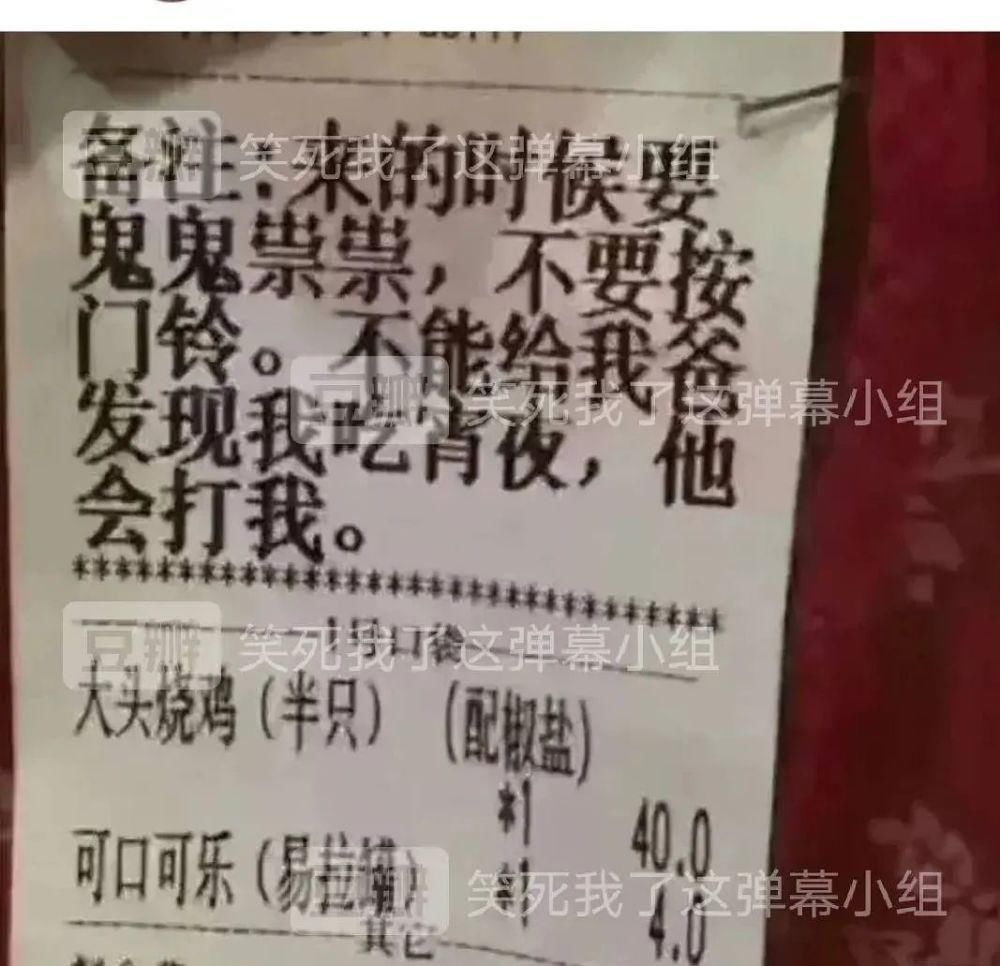 备注：来的时候要
鬼鬼祟祟，不要按
门铃。不能给我爸
发现我吃宵夜，他
会打我。
**********************************
大头烧鸡（半只）（配椒盐）
*1 40.0
可口可乐（易拉罐）*1 4.0
其它
豆瓣 笑死我了这弹幕小组
豆瓣 笑死我了这弹幕小组
豆瓣 笑死我了这弹幕小组
豆瓣 笑死我了这弹幕小组